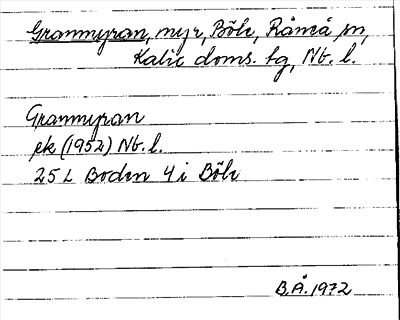 Granmyran, nyr, Böle, Råneå sn,
Kalix doms. tg, Nb. l.
Granmyran
ek (1952) Nb. l.
25 L Boden 4 i Böle
B.Å. 1972